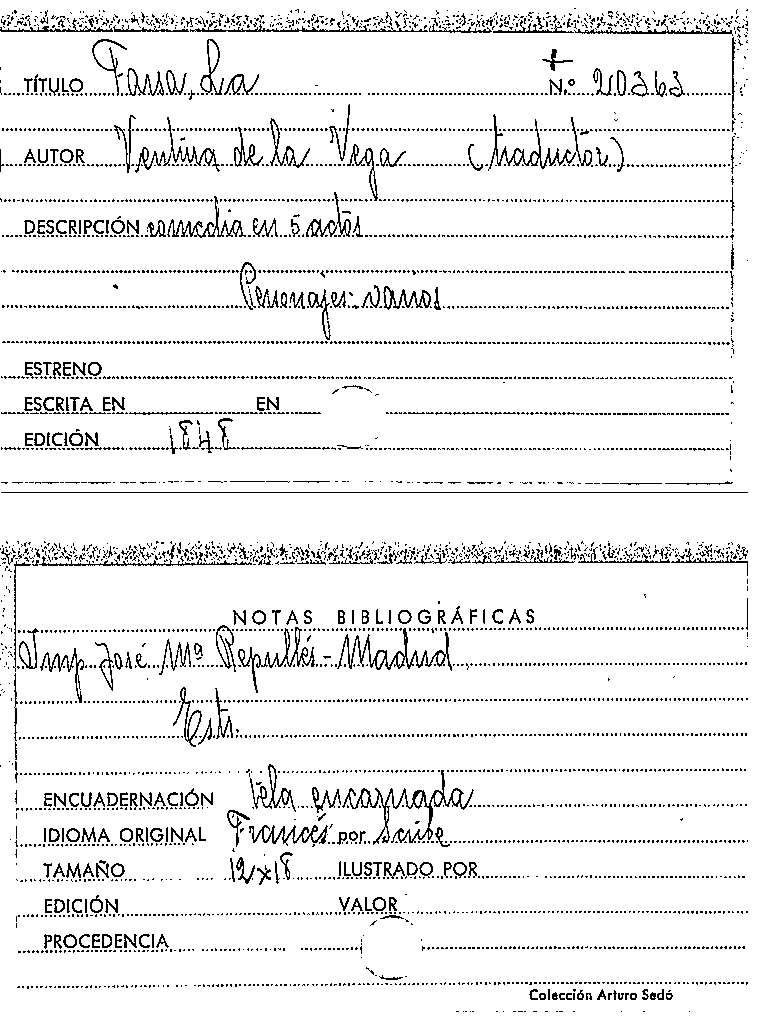 +
TÍTULO Farsa, La N.º 20363
AUTOR Ventura de la Vega (traductor)
DESCRIPCIÓN comedia en 5 actos
Personajes: varios
ESTRENO
ESCRITA EN EN
EDICIÓN 1848
NOTAS BIBLIOGRÁFICAS
Imp. José Mª Repullés - Madrid
Estr.
ENCUADERNACIÓN tela encarnada
IDIOMA ORIGINAL Francés por Scribe
TAMAÑO 12x18 ILUSTRADO POR
EDICIÓN VALOR
PROCEDENCIA
Colección Arturo Sedó